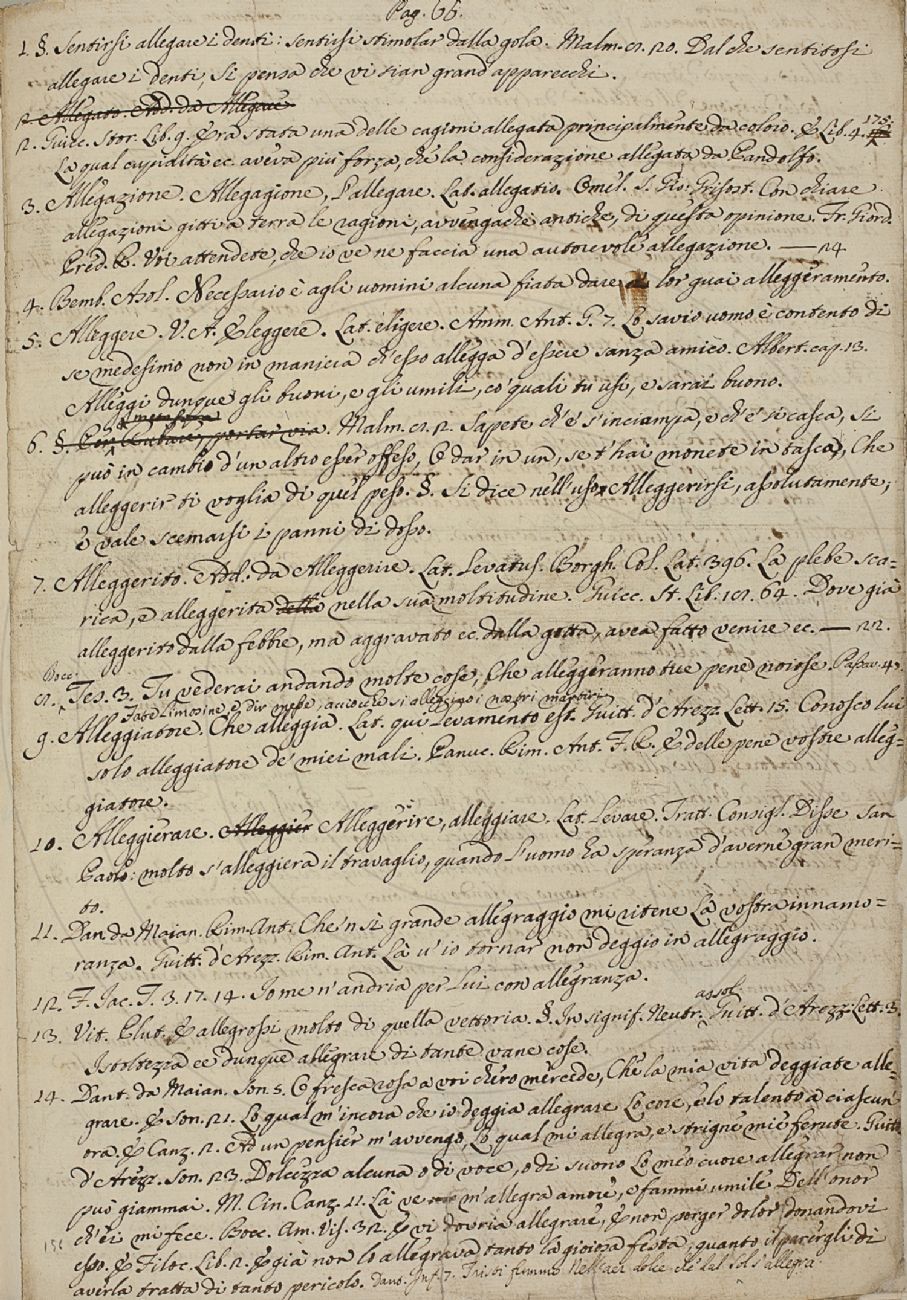 Pag. 66.
1. §. Sentirsi allegare i denti: sentirsi stimolar dalla gola. Malm. cr. 20. Dal che sentitosi
allegare i denti, Si pensa che vi sian grand'apparecchi.
2. Allegato. Add. da Allegare.
2. Guicc. Stor. Lib. 9. Era stata una delle cagioni allegata principalmente da coloro. E Lib. 4. 175.
La qual cupidità ec. aveva più forza, che la considerazione allegata da Pandolfo.
3. Allegazione. Allegagione, L'allegare. Lat. allegatio. Omel. S. Gio: Grisost. Con chiare
allegazioni gitti a terra le ragioni, avvengachè antiche, di questa opinione. Fr. Giord.
Pred. R. Voi attendete, che io ve ne faccia una autorevole allegazione. — 24
4. Bemb. Asol. Necessario è agli uomini alcuna fiata dare a' lor guai alleggeramento.
5. Alleggere. V. A. Eleggere. Lat. eligere. Amm. Ant. G. 7. Lo savio uomo è contento di
se medesimo non in maniera ch'esso allegga d'essere sanza amico. Albert. cap. 13.
Alleggi dunque gli buoni, e gli umili, co' quali tu usi, e sarai buono.
6. §. Per metafora Rubare, portar via. Malm. cr. 12. Sapete ch'e' s'inciampa, e ch'e' si casca, Si
può in cambio d'un altro esser offeso, E dar in un, se t'hai monete in tasca, Che
alleggerir ti voglia di quel peso. §. Si dice nell'uso Alleggerirsi, assolutamente,
e vale scemarsi i panni di dosso.
7. Alleggerito. Add. da Alleggerire. Lat. Levatus. Borgh. Col. Lat. 396. La plebe sca-
rica, e alleggerita della nella sua moltitudine. Guicc. St. Lib. 1cr. 64. Dove già
alleggerito dalla febbre, ma aggravato ec. dalla gotta, avea fatto venire ec. — 22.
Bocc.
cr. Tes. 3. Tu vederai andando molte cose, Che alleggeranno tue pene noiose. Passav. 47.
Fate Limosine, e dir messe, acciocchè si alleggino i nostri martiri
9. Alleggiatore. Che alleggia. Lat. qui Levamento est. Guitt. d'Arezz. Lett. 15. Conosco lui
solo alleggiatore de' miei mali. Panuc. Rim. Ant. F. R. E delle pene vostre alleg=
giatore.
10. Alleggierare. Alleggier Alleggerire, alleggiare. Lat. Levare. Tratt. Consigl. Disse San
Paolo: molto s'alleggiera il travaglio, quando l'uomo ha speranza d'averne gran meri-
to.
11. Dan. da Maian. Rim. Ant. Che 'n sì grande allegraggio mi ritene La vostra innamo=
ranza. Guitt. d'Arezz. Rim. Ant. Là u' io tornar non deggio in allegraggio.
12. F. Jac. T. 3. 17. 14. Io me n'andria per Lui con allegranza.
13. Vit. Plut. E allegrossi molto di quella vettoria. §. In signif. Neutr. assol. Guitt. d'Arezz. Lett. 3.
Istoltezza è dunque allegrare di tante vane cose.
14. Dant. da Maian. Son. 5. O fresca rosa a voi chero mercede, Che la mia vita deggiate alle-
grare. E Son. 21. Lo qual m'incora che io deggia allegrare Lo core, e lo talento a ciascun
ora. E Canz. 2. Ad un pensier m'avvengo, Lo qual mi allegra, e strigne mie ferute. Guitt.
d'Arezz. Son. 123. Dolcezza alcuna o di voce, o di suono Lo meo cuore allegrar non
può giammai. M. Cin. Canz. 11. Là ve m'allegra amore, e fammi umile Dell'onor
ch'ei mi fece. Bocc. Am. Vis. 32. E vi dovria allegrare, E non porger dolor donandovi
esso. E Filoc. Lib. 2. E già non lo allegrava tanto la gioiosa festa, quanto il parergli di
averla tratta di tanto pericolo. Dant. Inf. 7. Tristi fummo Nell'aer dolce che dal Sol s'allegra.